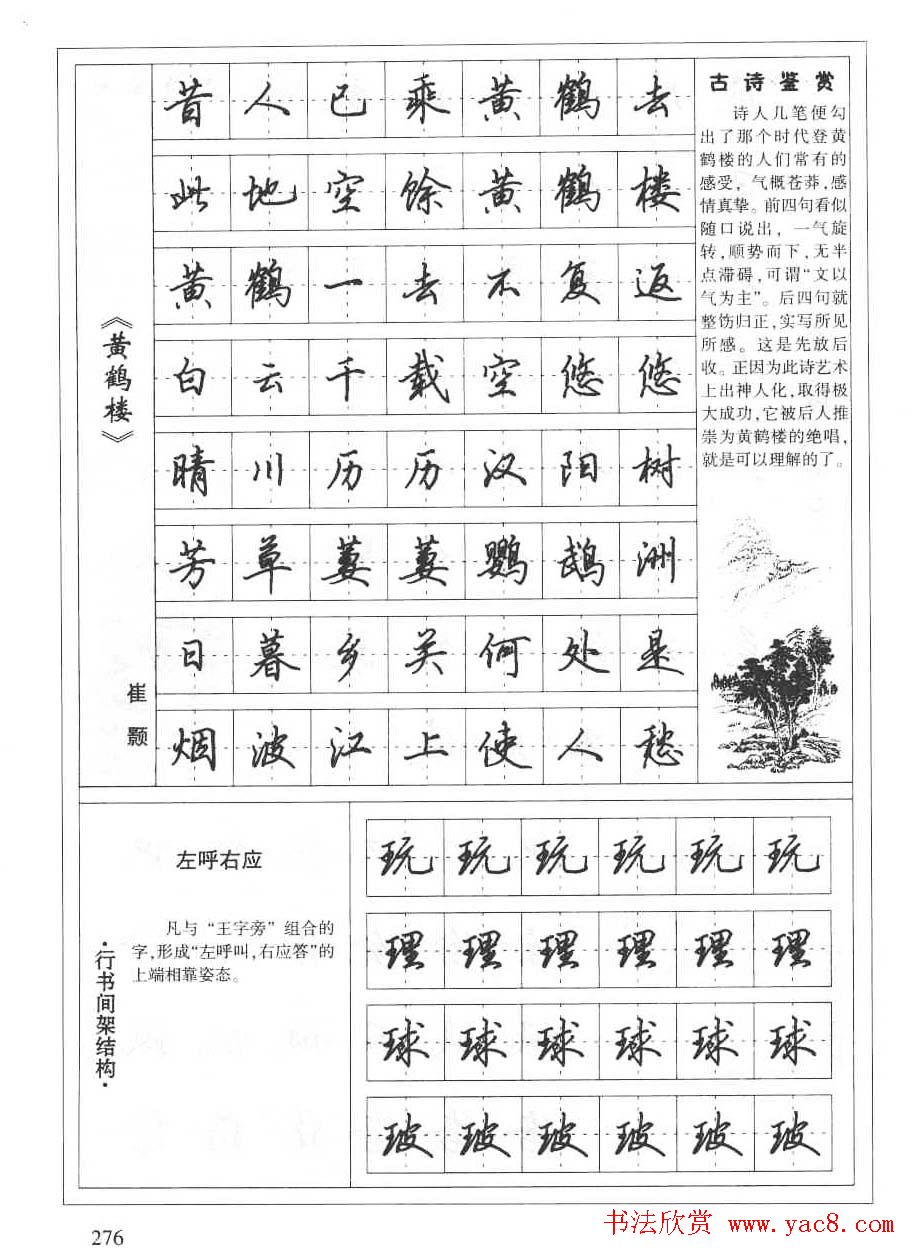 《黄鹤楼》
崔颢
昔人已乘黄鹤去
此地空馀黄鹤楼
黄鹤一去不复返
白云千载空悠悠
晴川历历汉阳树
芳草萋萋鹦鹉洲
日暮乡关何处是
烟波江上使人愁
古诗鉴赏
诗人几笔便勾
出了那个时代登黄
鹤楼的人们常有的
感受，气概苍莽，感
情真挚。前四句看似
随口说出，一气旋
转，顺势而下，无半
点滞碍，可谓“文以
气为主”。后四句就
整饬归正，实写所见
所感。这是先放后
收。正因为此诗艺术
上出神入化，取得极
大成功，它被后人推
崇为黄鹤楼的绝唱，
就是可以理解的了。
·行书间架结构·
左呼右应
凡与“王字旁”组合的
字，形成“左呼叫，右应答”的
上端相靠姿态。
玩玩玩玩玩玩
理理理理理理
球球球球球球
玻玻玻玻玻玻
276
书法欣赏 www.yac8.com